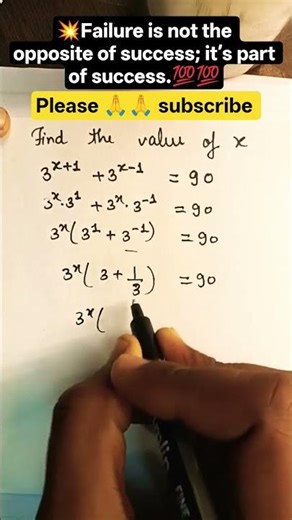 💥Failure is not the
opposite of success; it's part
of success.💯💯
Please 🙏🙏 subscribe
Find the value of x
3^{x+1} + 3^{x-1} = 90
3^x·3^1 + 3^x·3^{-1} = 90
3^x(3^1 + 3^{-1}) = 90
3^x(3 + 1/3) = 90
3^x(